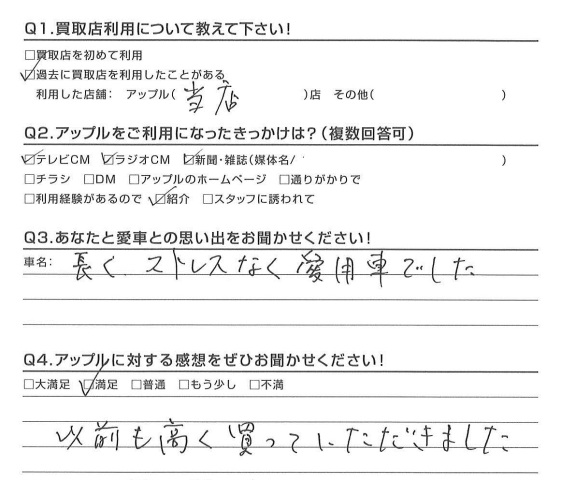 Q1.買取店利用について教えて下さい!
□買取店を初めて利用
☑過去に買取店を利用したことがある
利用した店舗: アップル(当店)店 その他( )
Q2.アップルをご利用になったきっかけは?(複数回答可)
☑テレビCM ☑ラジオCM ☑新聞・雑誌(媒体名/ )
□チラシ □DM □アップルのホームページ □通りがかりで
□利用経験があるので ☑紹介 □スタッフに誘われて
Q3.あなたと愛車との思い出をお聞かせください!
車名: 長く ストレスなく 愛用車でした
Q4.アップルに対する感想をぜひお聞かせください!
□大満足 ☑満足 □普通 □もう少し □不満
以前も高く買っていただきました